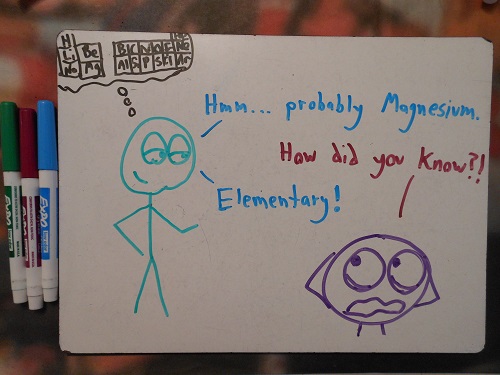 H
Li Be B C N O F Ne
Na Mg Al Si P S Cl Ar
Hmm... probably Magnesium.
How did you know?!
Elementary!
EXPO
EXPO
EXPO